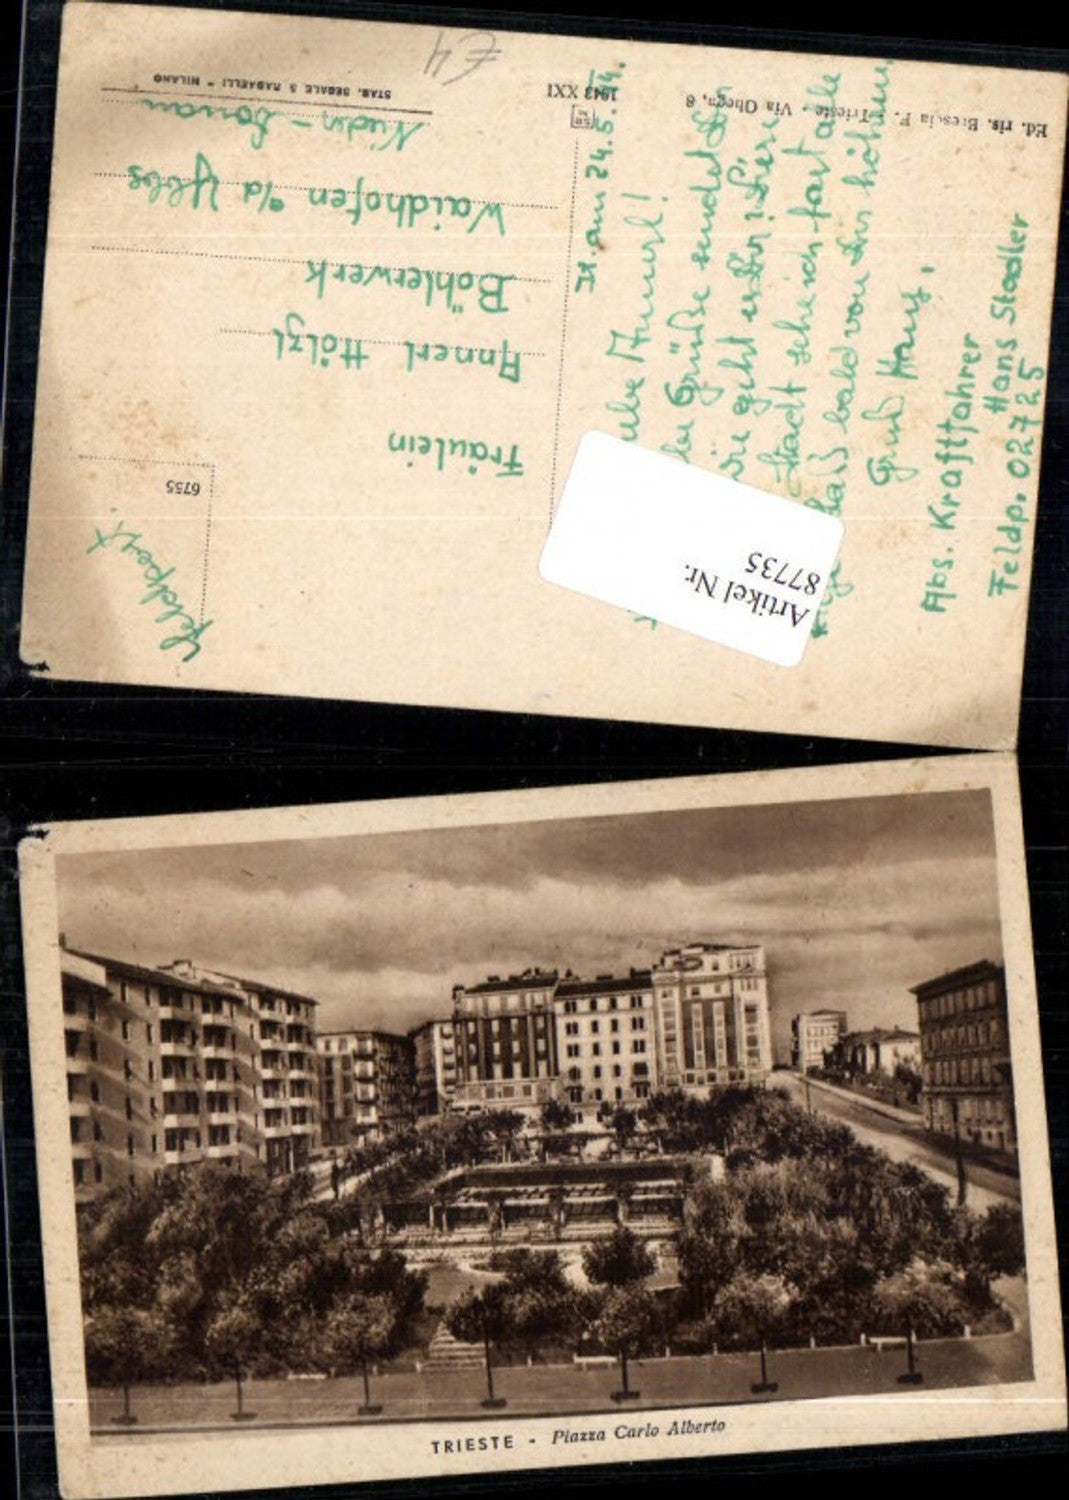 Ed. ris. Brescia F. - Trieste - Via Ghega, 8
1943 XXI
STAB. SEGALE & RABAELLI - MILANO
6755
€4
Feldpost
Fräulein
Annerl Hölzl
Böhlerwerk
Waidhofen a/d Ybbs
Nieder-Donau
am 24.5.44.
Liebe Annerl!
Grüße sendet Dir
wie geht es Dir? Diese
Stadt sehe ich fast alle
daß bald von Dir hören,
Gruß Hans,
Abs. Kraftfahrer
Hans Stadler
Feldp. 02725
Artikel Nr.
87735
TRIESTE - Piazza Carlo Alberto